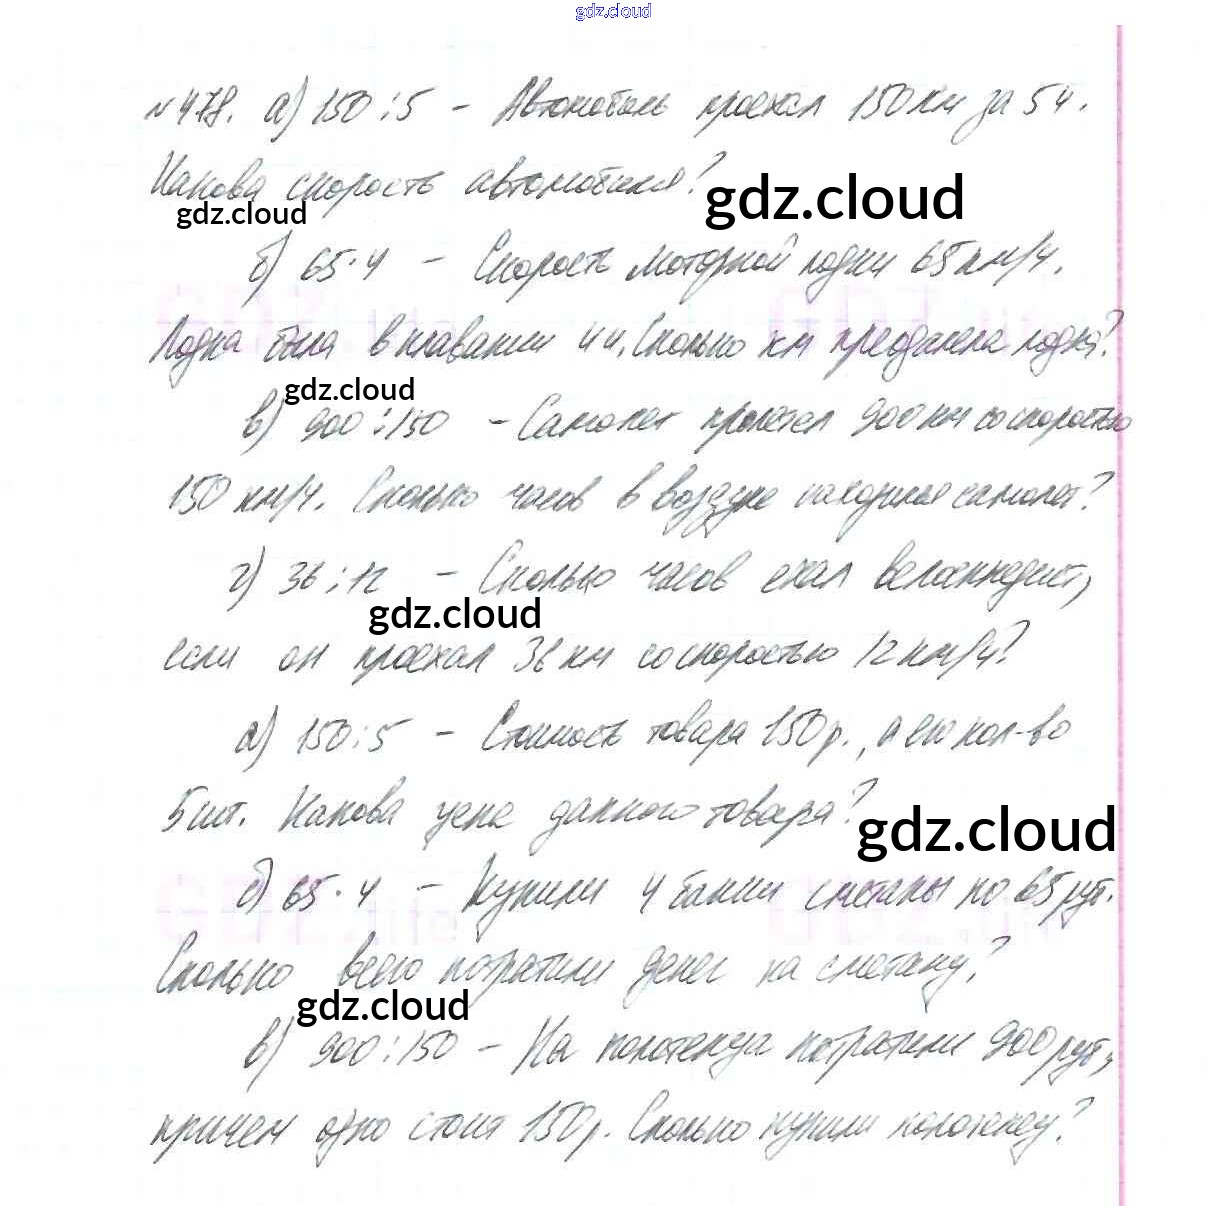 gdz.cloud
№478. а) 150:5 – Автомобиль проехал 150 км за 5 ч.
Какова скорость автомобиля?
gdz.cloud
gdz.cloud
б) 65·4 – Скорость моторной лодки 65 км/ч.
GDZ.life GDZ.life
Лодка была в плавании 4 ч. Сколько км преодалела лодка?
gdz.cloud
в) 900:150 – Самолет пролетел 900 км со скоростью
150 км/ч. Сколько часов в воздухе находился самолет?
г) 36:12 – Сколько часов ехал велосипедист,
gdz.cloud
если он проехал 36 км со скоростью 12 км/ч?
а) 150:5 – Стоимость товара 150 р., а его кол-во
5 шт. Какова цена данного товара?
gdz.cloud
б) 65·4 – Купили 4 банки сметаны по 65 руб.
GDZ.life GDZ.life
Сколько всего потратили денег на сметану?
gdz.cloud
в) 900:150 – На полотенца потратили 900 руб,
причем одно стоит 150 р. Сколько купили полотенец?